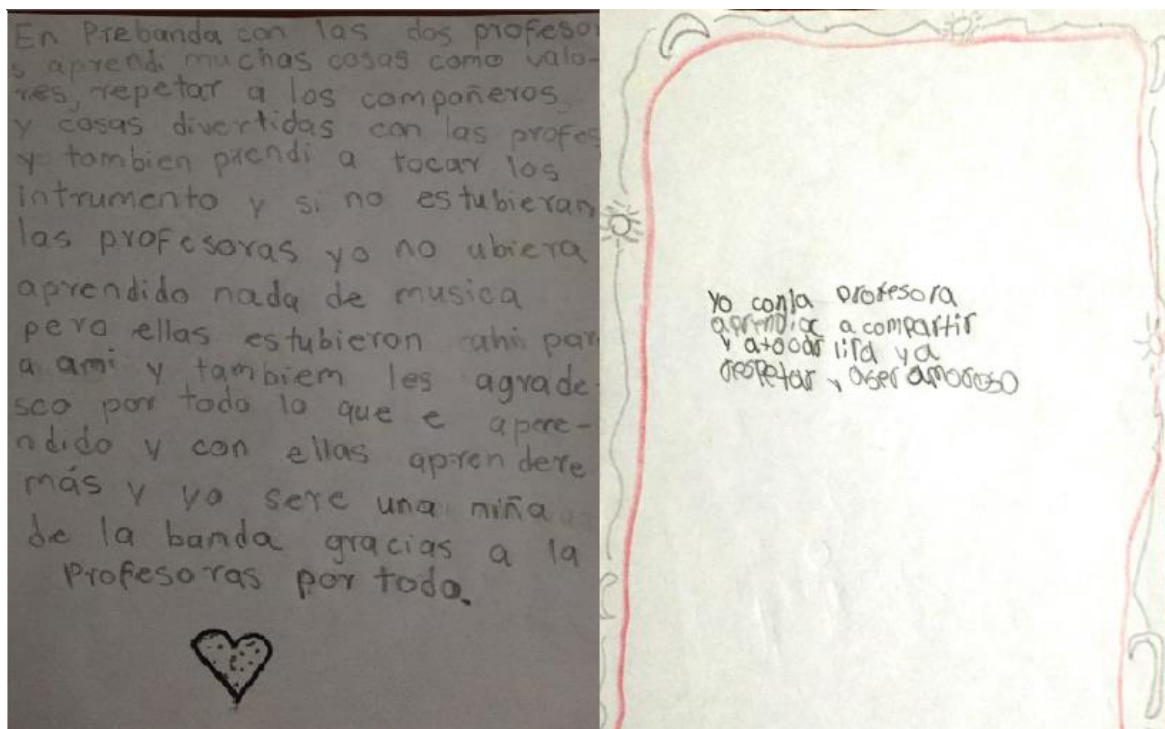 En Prebanda con las dos profesor
s aprendi muchas cosas como valo-
res, repetar a los compañeros
y cosas divertidas con las profes
y tambien prendi a tocar los
intrumento y si no estubieran
las profesoras yo no ubiera
aprendido nada de musica
pero ellas estubieron ahi par
a ami y tambiem les agrade-
sco por todo lo que e apere-
ndido y con ellas aprendere
más y yo sere una niña
de la banda gracias a la
Profesoras por todo.
yo con la profesora
a compartir
y a tocar lira y a
respetar y aser amoroso